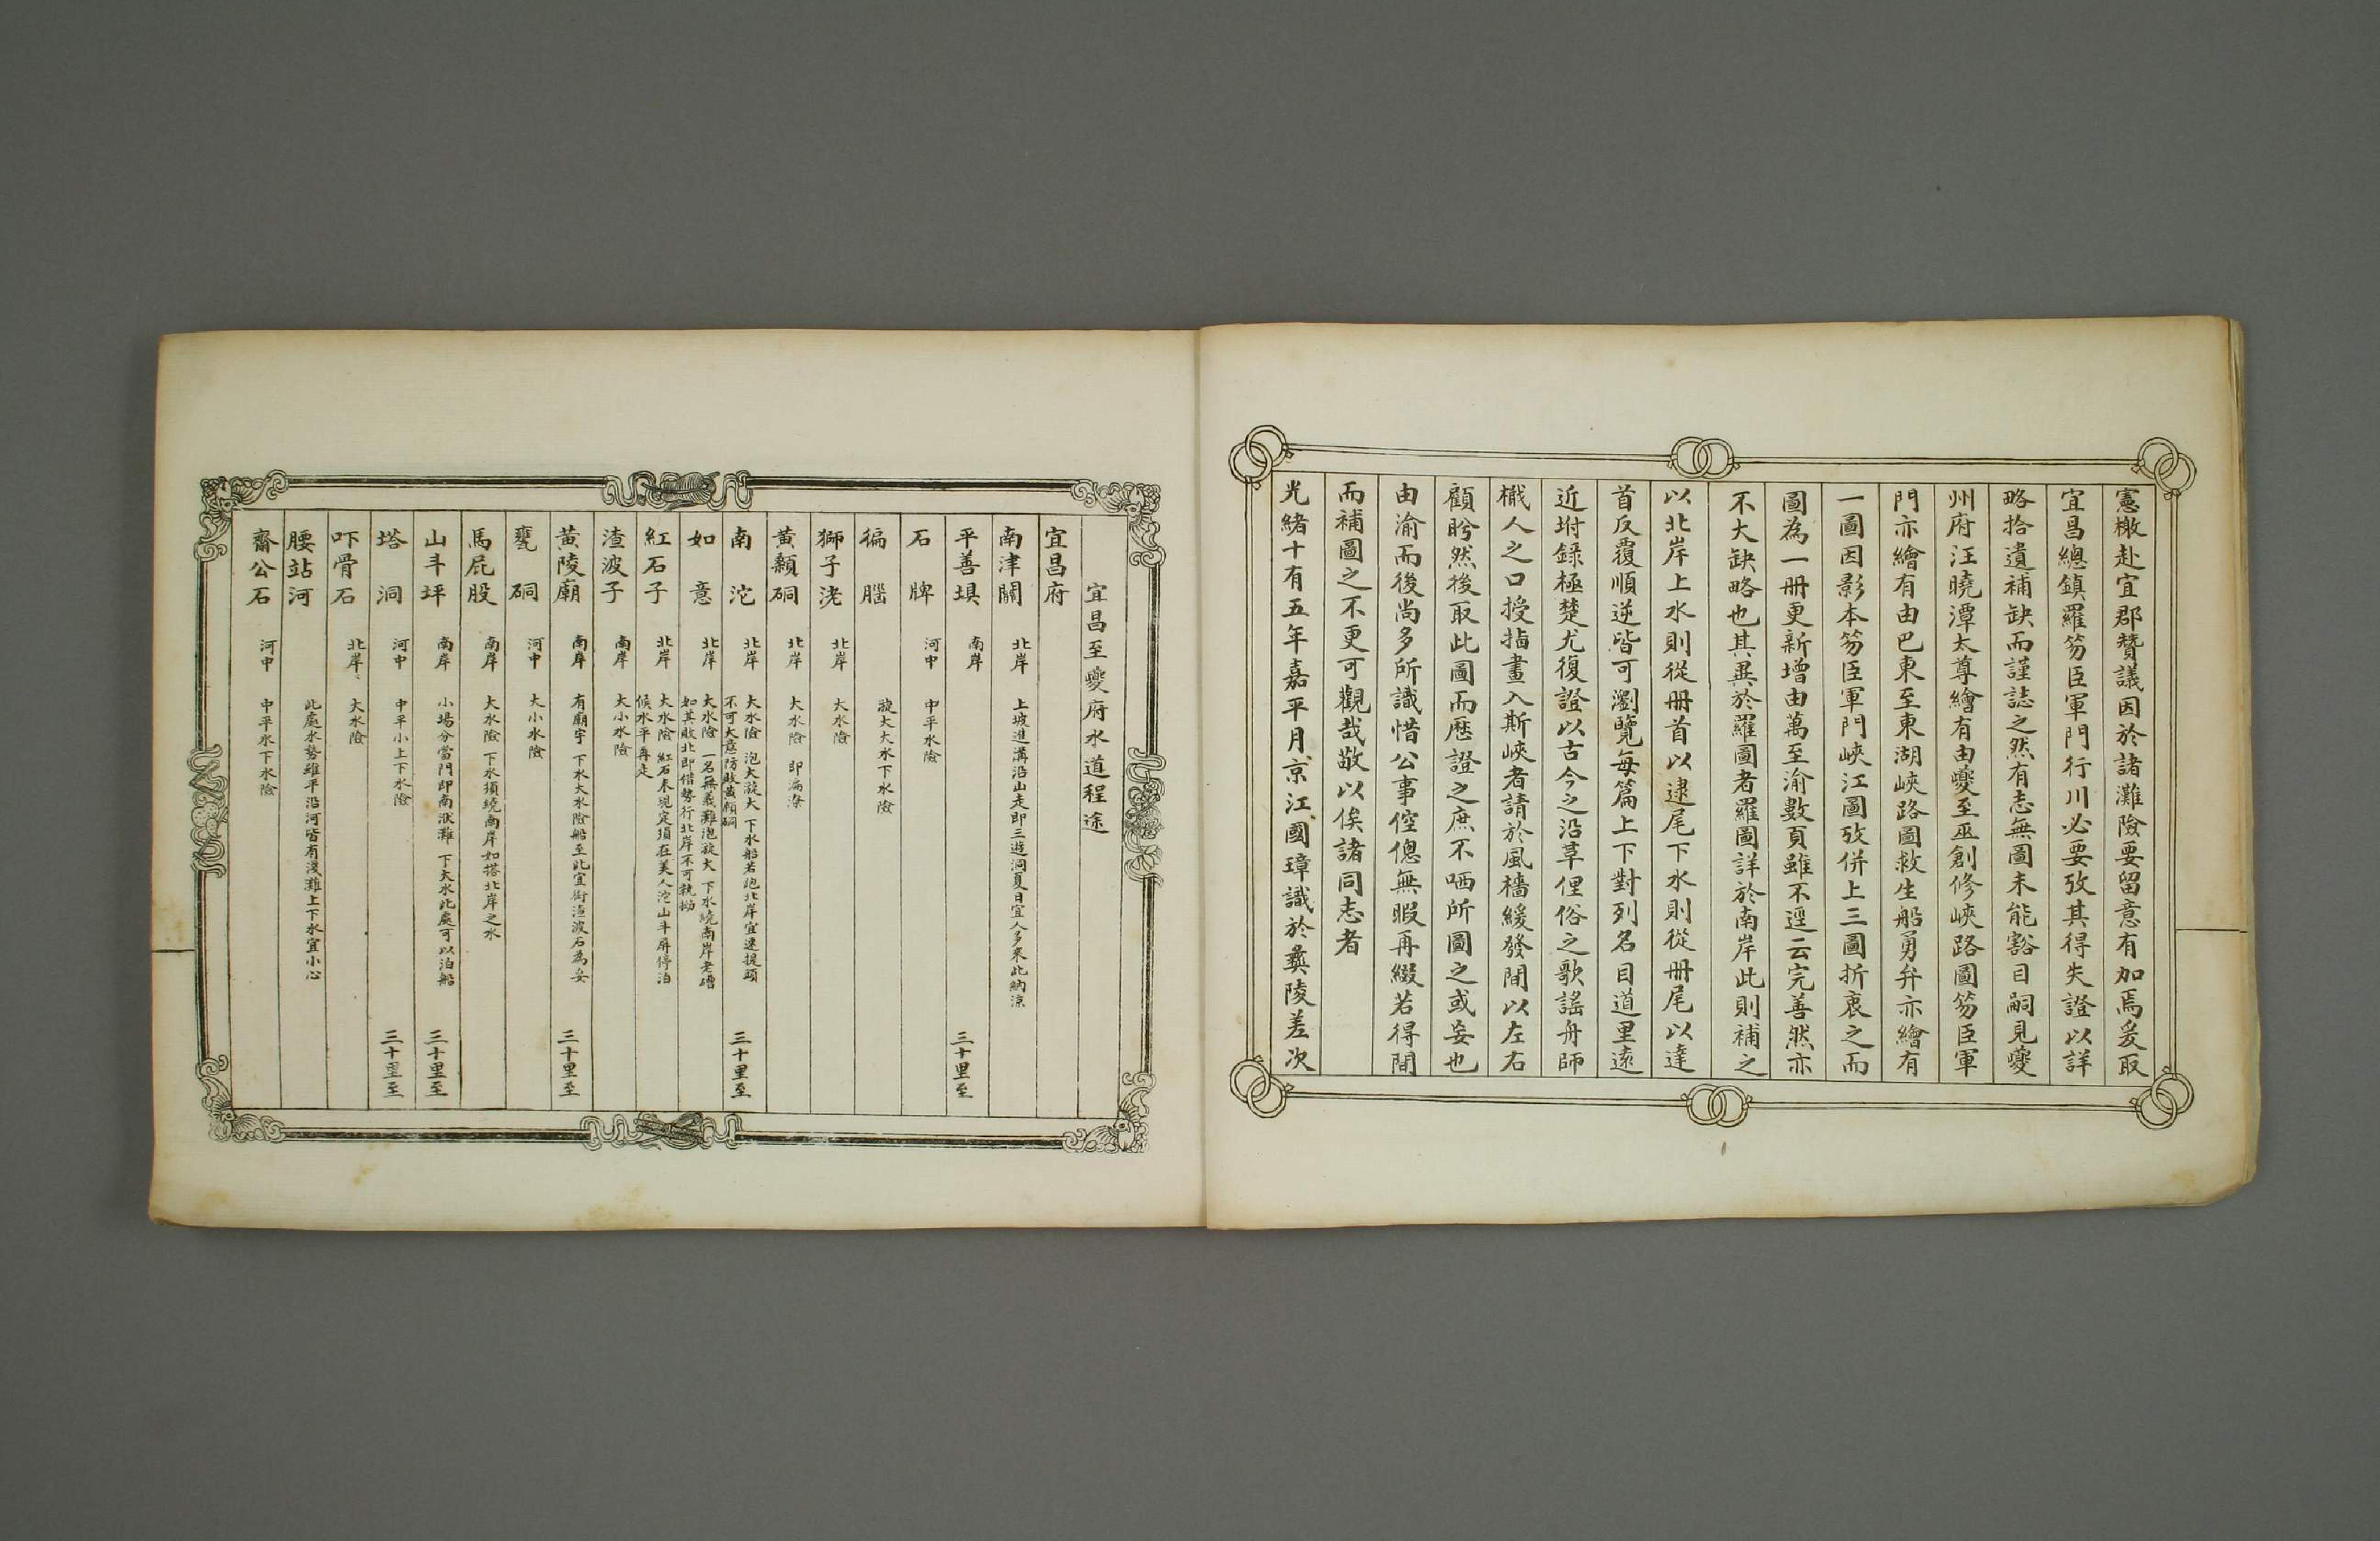 憲檄赴宜郡贊議因於諸灘險要留意有加焉爰取
宜昌總鎮羅笏臣軍門行川必要攷其得失證以詳
略拾遺補缺而謹誌之然有志無圖未能豁目嗣見夔
州府汪曉潭太尊繪有由夔至巫創修峽路圖笏臣軍
門亦繪有由巴東至東湖峽路圖救生船勇弁亦繪有
一圖因影本笏臣軍門峽江圖攷併上三圖折衷之而
圖為一冊更新增由萬至渝數頁雖不逕云完善然亦
不大缺略也其異於羅圖者羅圖詳於南岸此則補之
以北岸上水則從冊首以逮尾下水則從冊尾以達
首反覆順逆皆可瀏覽每篇上下對列名目道里遠
近坿錄極楚尤復證以古今之沿革俚俗之歌謠舟師
檝人之口授指畫入斯峽者請於風檣緩發間以左右
顧盻然後取此圖而歷證之庶不哂所圖之或妄也
由渝而後尚多所識惜公事倥傯無暇再綴若得閒
而補圖之不更可觀哉敬以俟諸同志者
光緒十有五年嘉平月京江國璋識於彝陵差次
宜昌至夔府水道程途
宜昌府
南津關 北岸 上坡進溝沿山走即三遊洞夏日宜人多來此納涼
平善垻 南岸 三十里至
石牌 河中 中平水險
徧腦 漩大大水下水險
獅子㳘 北岸 大水險
黃顙硐 北岸 大水險 即漏滂
南沱 北岸 大水險 泡大漩大 下水船若跑北岸宜速提頭不可大意防敗黃顙硐 三十里至
如意 北岸 大水險 一名無義灘泡漩大 下水繞南岸老礌如其敗北即借勢行北岸不可執拗
紅石子 北岸 大水險 紅石未現定須在美人沱山斗屏停泊候水平再走
渣波子 南岸 大小水險
黃陵廟 南岸 有廟宇 下水大水險船至此宜銜渣波石為妥 三十里至
甕硐 河中 大小水險
馬屁股 南岸 大水險 下水須繞南岸如搭北岸之水
山斗坪 南岸 小場分當門即南洑灘 下大水此處可以泊船 三十里至
塔洞 河中 中平小上下水險 三十里至
吓骨石 北岸 大水險
腰站河 此處水勢雖平沿河皆有淺灘上下水宜小心
齋公石 河中 中平水下水險